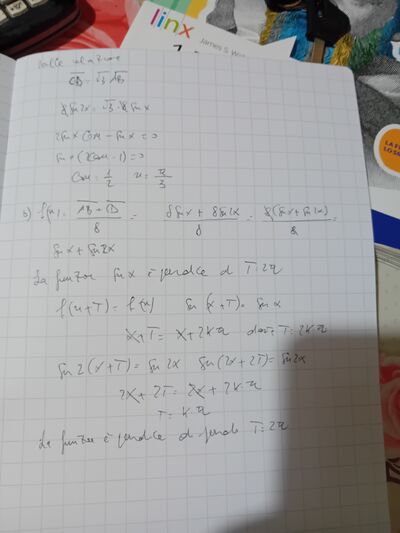 linx
James S. W
CD = √3 AB
8 sin 2x = √3 · 8 sin x
2 sin x cos x - sin x = 0
sin x (2 cos x - 1) = 0
cos x = 1/2 x = π/3
b) f(x) = (AB + CD)/8 = (8 sin x + 8 sin 2x)/8 = 8(sin x + sin 2x)/8 =
sin x + sin 2x
La funzione sin x è periodica di T = 2π
f(x+T) = f(x) sin (x+T) = sin x
x + T = x + 2kπ dove T = 2kπ
sin 2(x+T) = sin 2x sin (2x+2T) = sin 2x
2x + 2T = 2x + 2kπ
T = kπ
La funzione è periodica di periodo T = 2π